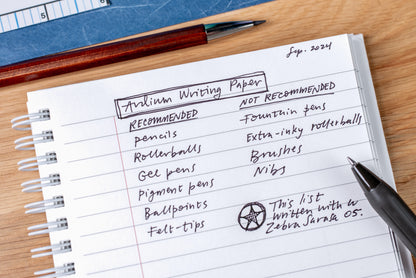 Sep. 2024
Ardium Writing Paper
RECOMMENDED
Pencils
Rollerballs
Gel pens
Pigment pens
Ballpoints
Felt-tips
NOT RECOMMENDED
Fountain pens
Extra-inky rollerballs
Brushes
Nibs
This list
written with a
Zebra Sarasa 05.